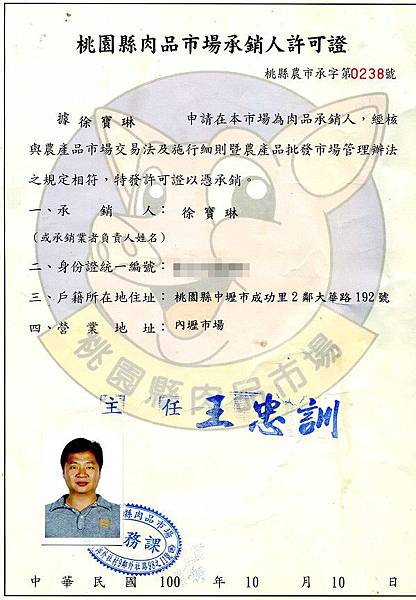 桃園縣肉品市場承銷人許可證
桃縣農市承字第0238號
據 徐寶琳 申請在本市場為肉品承銷人，經核
與農產品市場交易法及施行細則暨農產品批發市場管理辦法
之規定相符，特發許可證以憑承銷。
一、承銷人：徐寶琳
（或承銷業者負責人姓名）
二、身份證統一編號：
三、戶籍所在地住址：桃園縣中壢市成功里2鄰大華路192號
四、營業地址：內壢市場
桃園縣肉品市場
主任 王忠訓
縣肉品市場
務課
中華民國 100 年 10 月 10 日